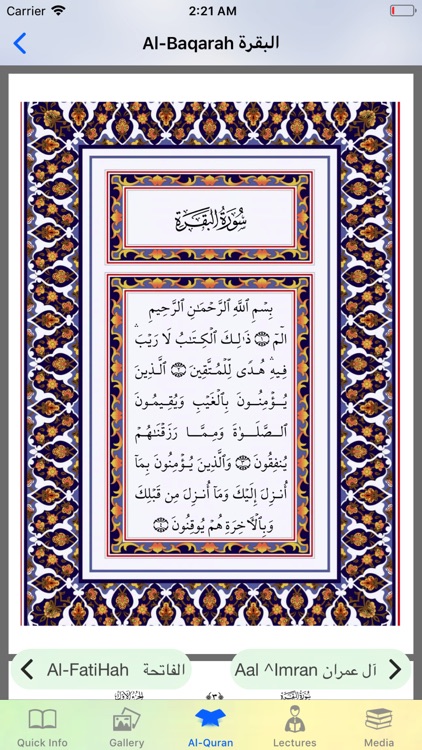 Carrier 2:21 AM
Al-Baqarah البقرة
سُورَةُ البَقَرَةِ
بِسْمِ ٱللَّهِ ٱلرَّحْمَـٰنِ ٱلرَّحِيمِ
الٓمٓ ۝١ ذَٰلِكَ ٱلْكِتَـٰبُ لَا رَيْبَ ۛ
فِيهِ ۛ هُدًى لِّلْمُتَّقِينَ ۝٢ ٱلَّذِينَ
يُؤْمِنُونَ بِٱلْغَيْبِ وَيُقِيمُونَ
ٱلصَّلَوٰةَ وَمِمَّا رَزَقْنَـٰهُمْ
يُنفِقُونَ ۝٣ وَٱلَّذِينَ يُؤْمِنُونَ بِمَآ
أُنزِلَ إِلَيْكَ وَمَآ أُنزِلَ مِن قَبْلِكَ
وَبِٱلْـَٔاخِرَةِ هُمْ يُوقِنُونَ ۝٤
Al-FatiHah الفاتحة
Aal ^Imran آل عمران
سُورَةُ البَقَرَةِ ٣ الجُزءُ الأَوَّلُ
Quick Info Gallery Al-Quran Lectures Media